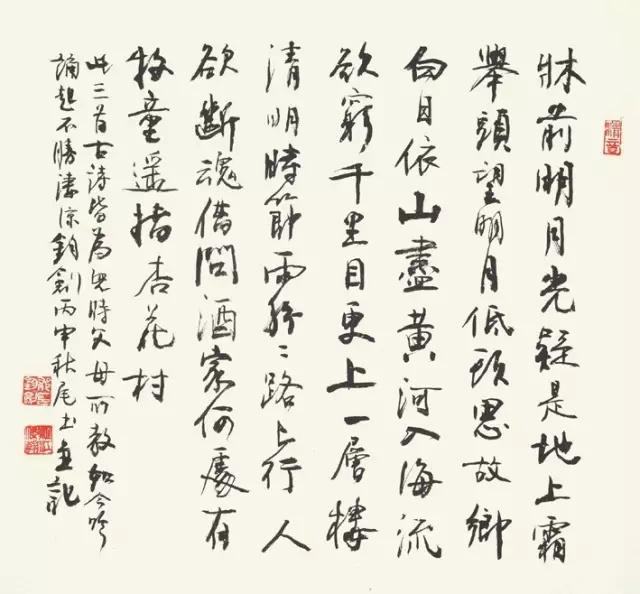 牀前明月光疑是地上霜
舉頭望明月低頭思故鄉
白日依山盡黃河入海流
欲窮千里目更上一層樓
清明時節雨紛〻路上行人
欲斷魂借問酒家何處有
牧童遥指杏花村
此三首古詩皆為兒時父母所教如今吟
誦起不勝淒涼丙申秋尾书並記